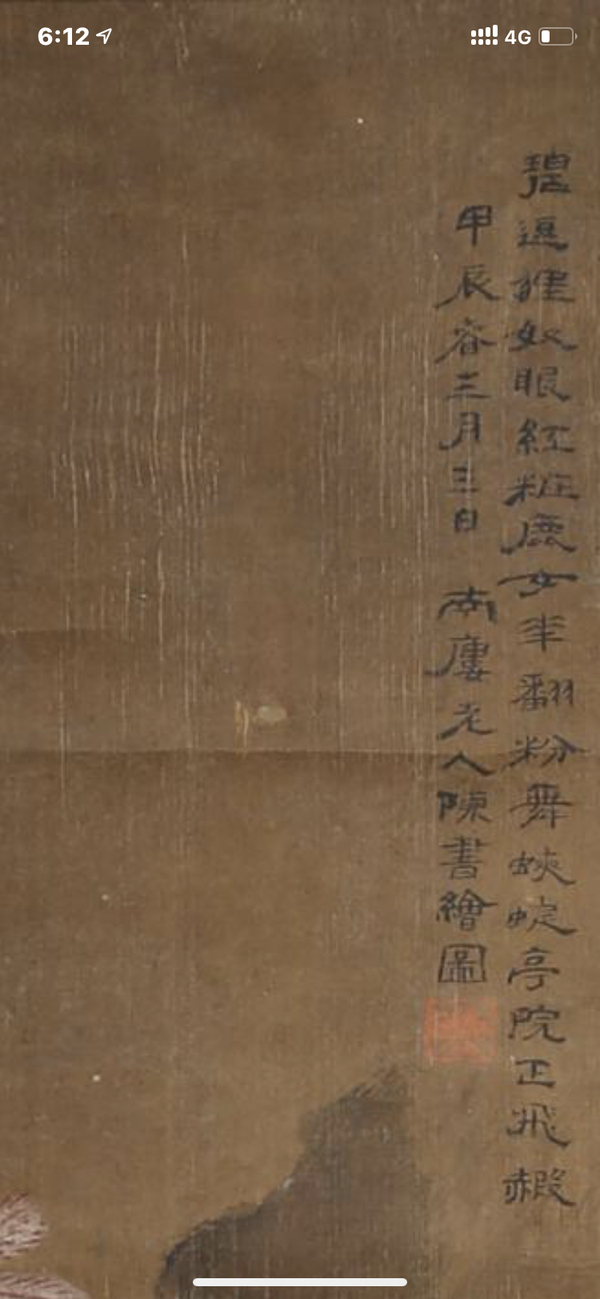 6:12
4G
碧逗貍奴眼紅粧鹿女半翻粉舞蛺蜨亭院正飛赮
甲辰春三月三日 南廔老人陳書繪圖